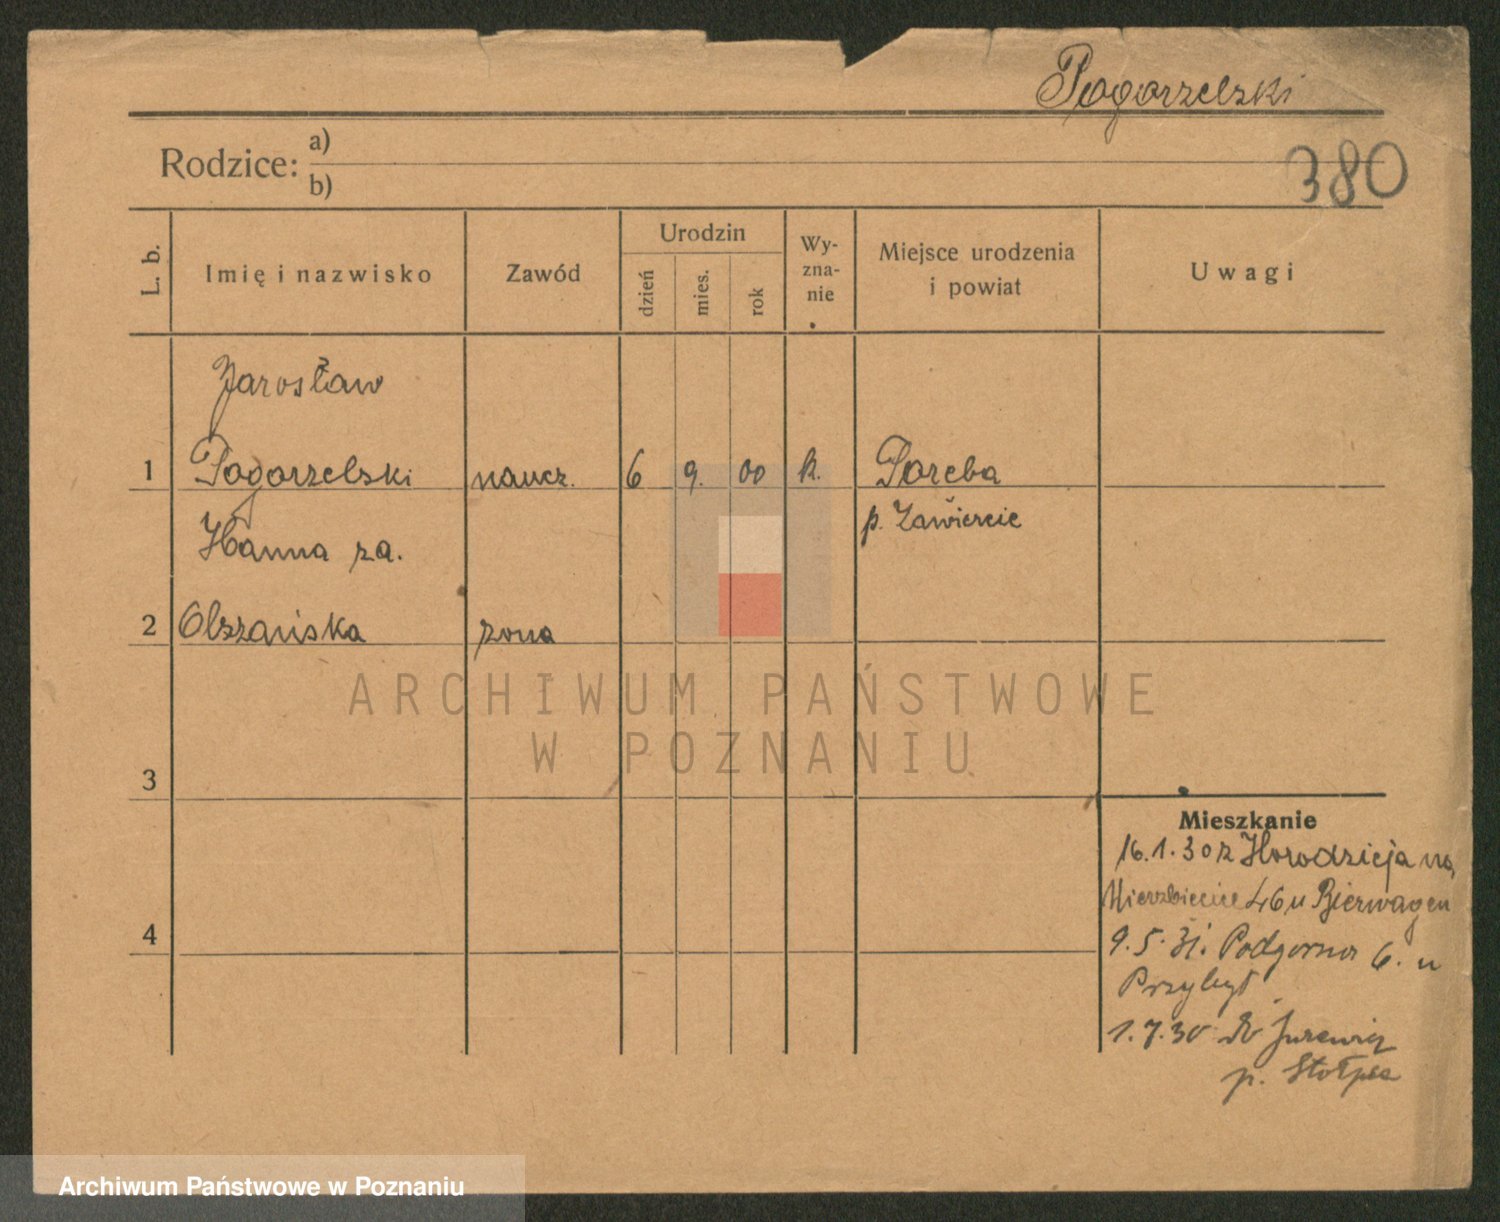 Pogorzelski
380
Rodzice: a)
b)
L. b.
Imię i nazwisko
Zawód
Urodzin
dzień
mies.
rok
Wy-
zna-
nie
Miejsce urodzenia
i powiat
Uwagi
Jarosław
1 Pogorzelski naucz. 6 9. 00 k. Poreba
p. Zawiercie
Hanna za.
2 Olszańska zona
ARCHIWUM PAŃSTWOWE
W POZNANIU
3
Mieszkanie
16.1.30 z Horodzieja na
Wierzbiecice 46 u Bierwagen
4
9.5.31. Podgorna 6. u
Przybył
1.7.30 do Jurewicz
p. Stołpce
Archiwum Państwowe w Poznaniu